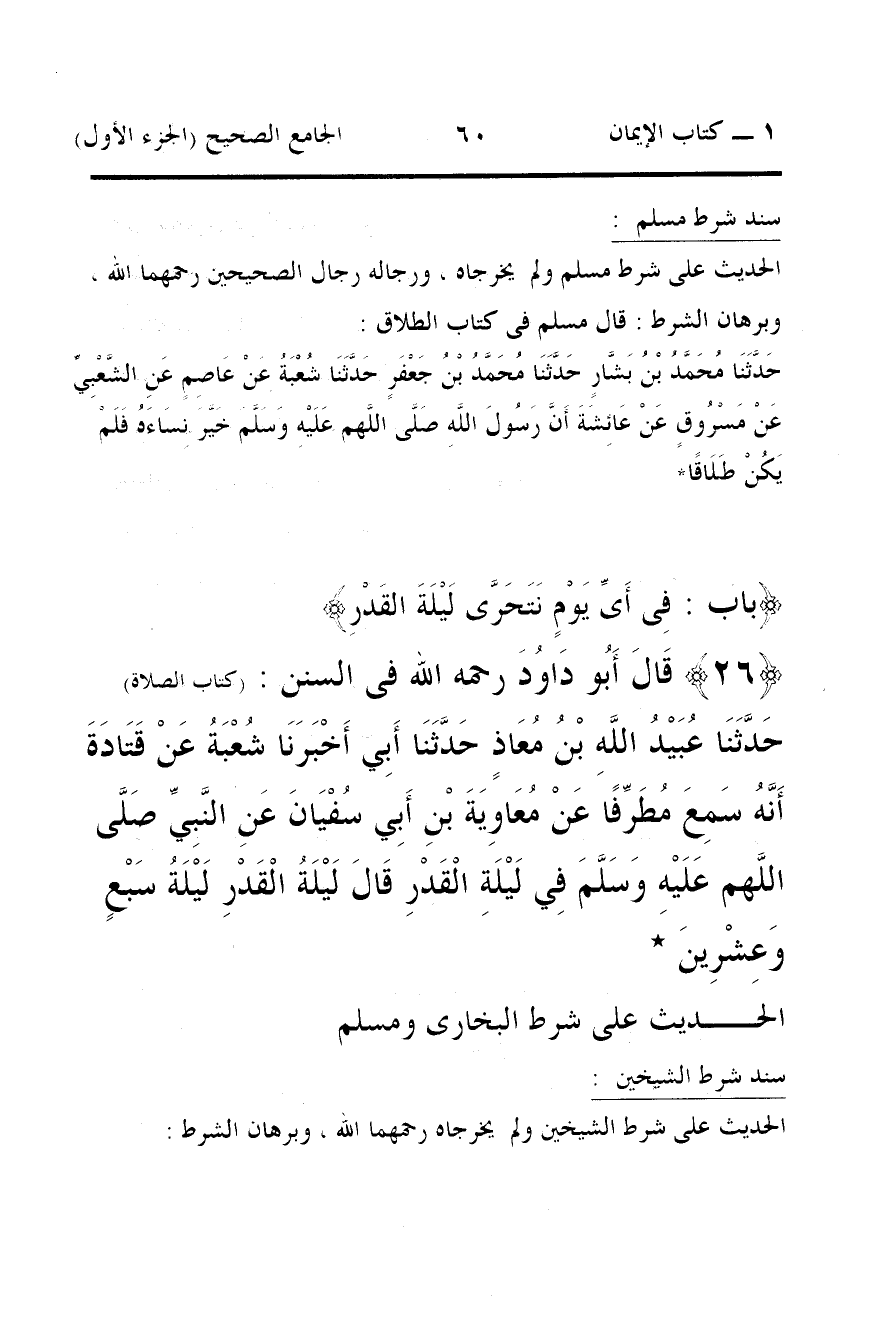 ١ ــ كتاب الإيمان ٦٠ الجامع الصحيح (الجزء الأول)
سند شرط مسلم :
الحديث على شرط مسلم ولم يخرجاه ، ورجاله رجال الصحيحين رحمهما الله ،
وبرهان الشرط : قال مسلم فى كتاب الطلاق :
حَدَّثَنَا مُحَمَّدُ بْنُ بَشَّارٍ حَدَّثَنَا مُحَمَّدُ بْنُ جَعْفَرٍ حَدَّثَنَا شُعْبَةُ عَنْ عَاصِمٍ عَنِ الشَّعْبِيِّ
عَنْ مَسْرُوقٍ عَنْ عَائِشَةَ أَنَّ رَسُولَ اللَّهِ صَلَّى اللَّهم عَلَيْهِ وَسَلَّمَ خَيَّرَ نِسَاءَهُ فَلَمْ
يَكُنْ طَلَاقًا*
﴿باب : فِى أَىِّ يَوْمٍ نَتَحَرَّى لَيْلَةَ القَدْرِ﴾
﴿٢٦﴾ قَالَ أَبُو دَاوُدَ رحمه الله فى السنن : (كتاب الصلاة)
حَدَّثَنَا عُبَيْدُ اللَّهِ بْنُ مُعَاذٍ حَدَّثَنَا أَبِي أَخْبَرَنَا شُعْبَةُ عَنْ قَتَادَةَ
أَنَّهُ سَمِعَ مُطَرِّفًا عَنْ مُعَاوِيَةَ بْنِ أَبِي سُفْيَانَ عَنِ النَّبِيِّ صَلَّى
اللَّهم عَلَيْهِ وَسَلَّمَ فِي لَيْلَةِ الْقَدْرِ قَالَ لَيْلَةُ الْقَدْرِ لَيْلَةُ سَبْعٍ
وَعِشْرِينَ *
الحـــــديث على شرط البخارى ومسلم
سند شرط الشيخين :
الحديث على شرط الشيخين ولم يخرجاه رحمهما الله ، وبرهان الشرط :